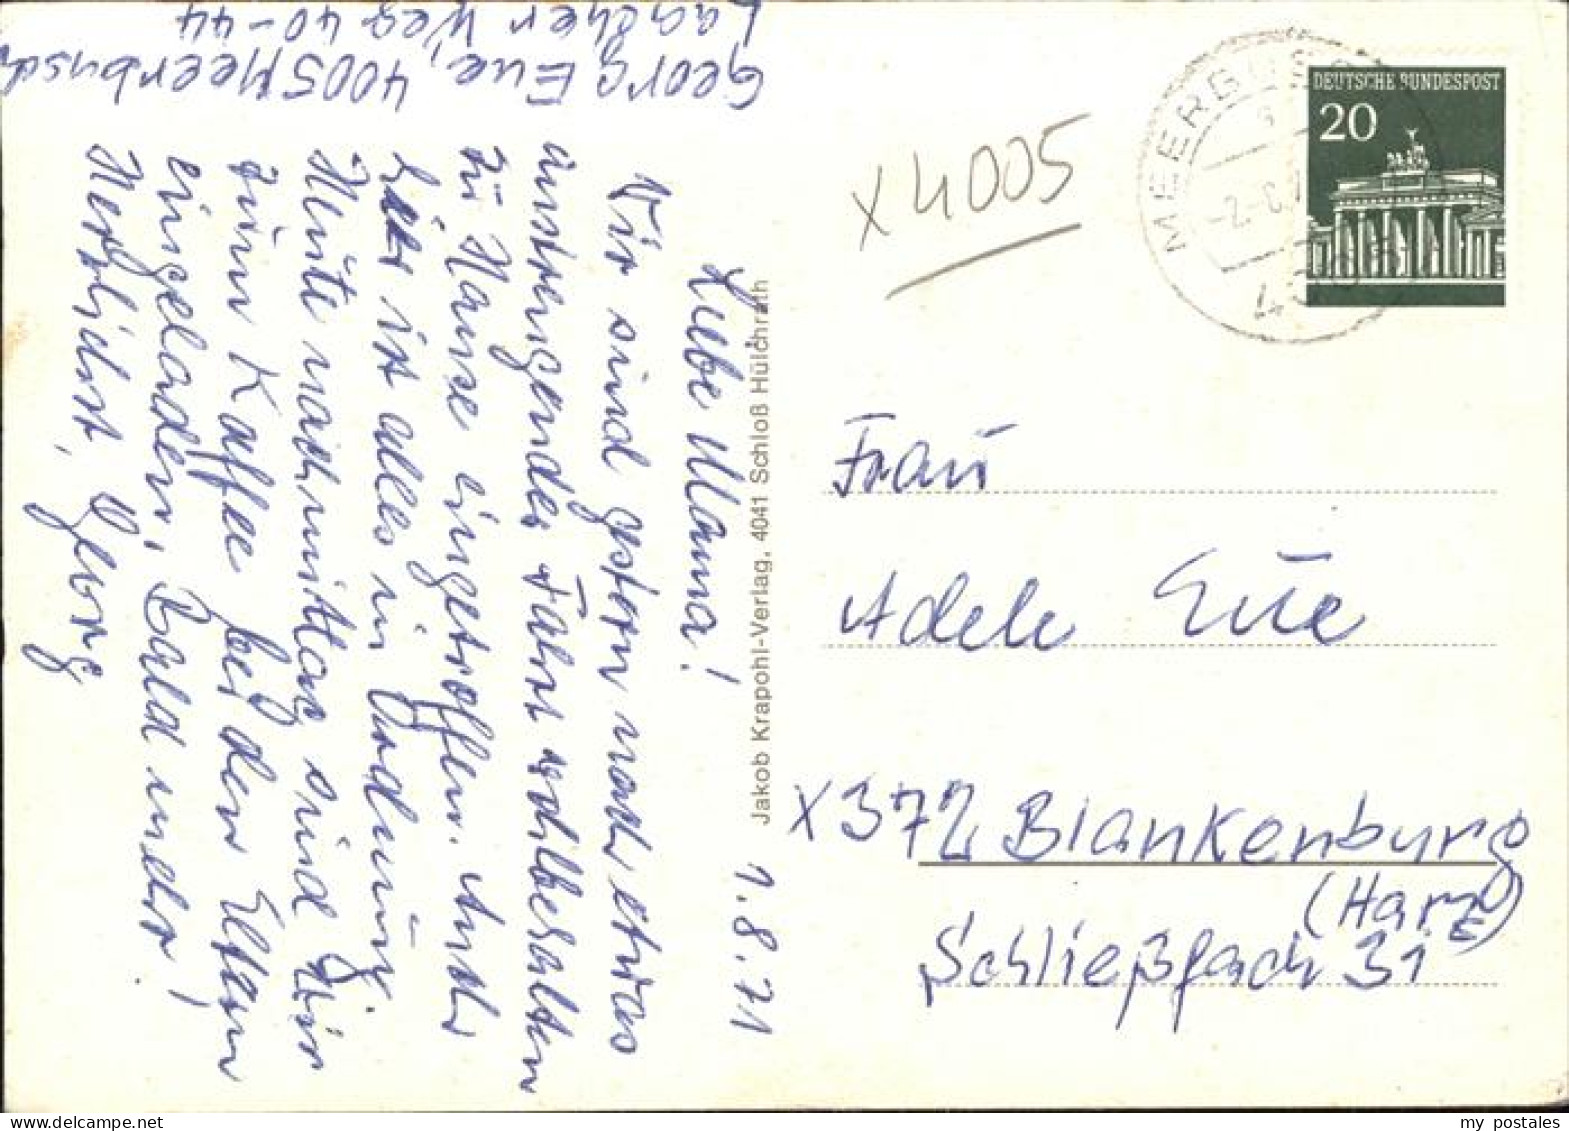 Georg Eue, 4005 Meerbusch
Laacher Weg 40-44
1.8.71
Liebe Mama!
Wir sind gestern nach etwas
anstrengender Fahrt wohlbehalten
zu Hause eingetroffen. Auch
hier ist alles in Ordnung.
Heute nachmittag sind wir
zum Kaffee bei den Eltern
eingeladen. Bald mehr!
Herzlichst, Georg
Jakob Krapohl-Verlag, 4041 Schloß Hülchrath
x 4005
MEERBUSCH
-2.-8.7
4005
DEUTSCHE BUNDESPOST
20
Frau
Adele Eue
x 372 Blankenburg
(Harz)
Schließfach 31
my postales